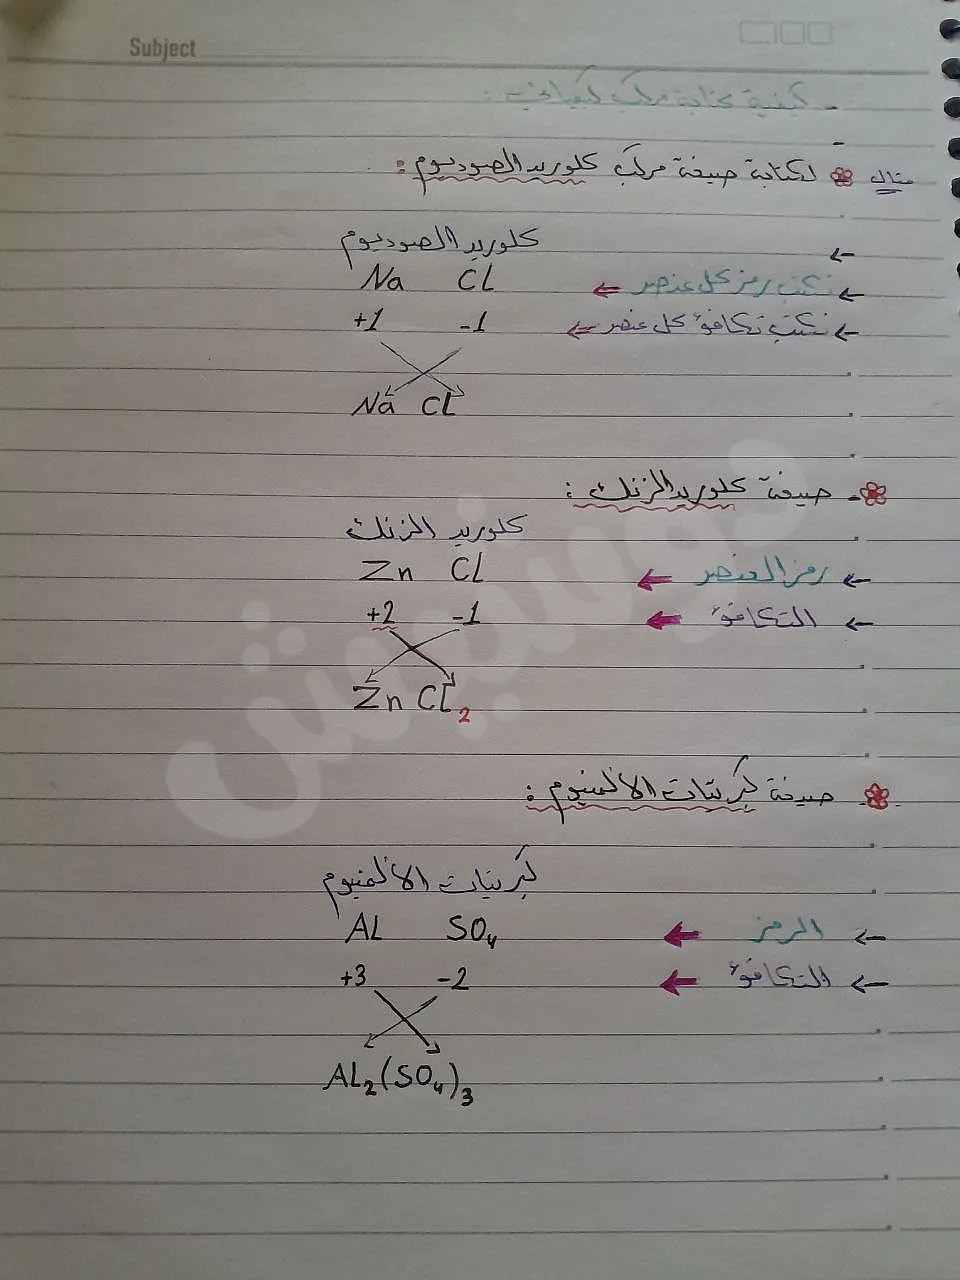 Subject
- كيفية كتابة مركب كيميائي :
مثال لكتابة صيغة مركب كلوريد الصوديوم :
كلوريد الصوديوم
← نكتب رمز كل عنصر ← Na CL
← نكتب تكافؤ كل عنصر ← +1 -1
Na CL
- صيغة كلوريد الزنك :
كلوريد الزنك
← رمز العنصر ← Zn CL
← التكافؤ ← +2 -1
Zn CL₂
- صيغة كبريتات الألمنيوم :
كبريتات الألمنيوم
← الرمز ← AL SO₄
← التكافؤ ← +3 -2
AL₂(SO₄)₃